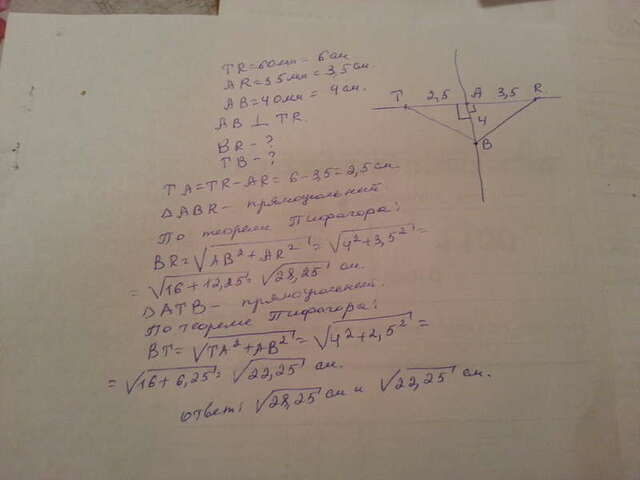 TR=60мм=6см
AR=35мм=3,5см.
AB=40мм=4см.
AB ⊥ TR.
BR-?
TB-?
T 2,5 A 3,5 R
4
B
TA=TR-AR=6-3,5=2,5см.
ΔABR- прямоугольный
По теореме Пифагора:
BR=√AB²+AR²=√4²+3,5²=
=√16+12,25=√28,25 см.
ΔATB- прямоугольный.
По теореме Пифагора:
BT=√TA²+AB²=√4²+2,5²=
=√16+6,25=√22,25 см.
ответ: √28,25 см и √22,25 см.